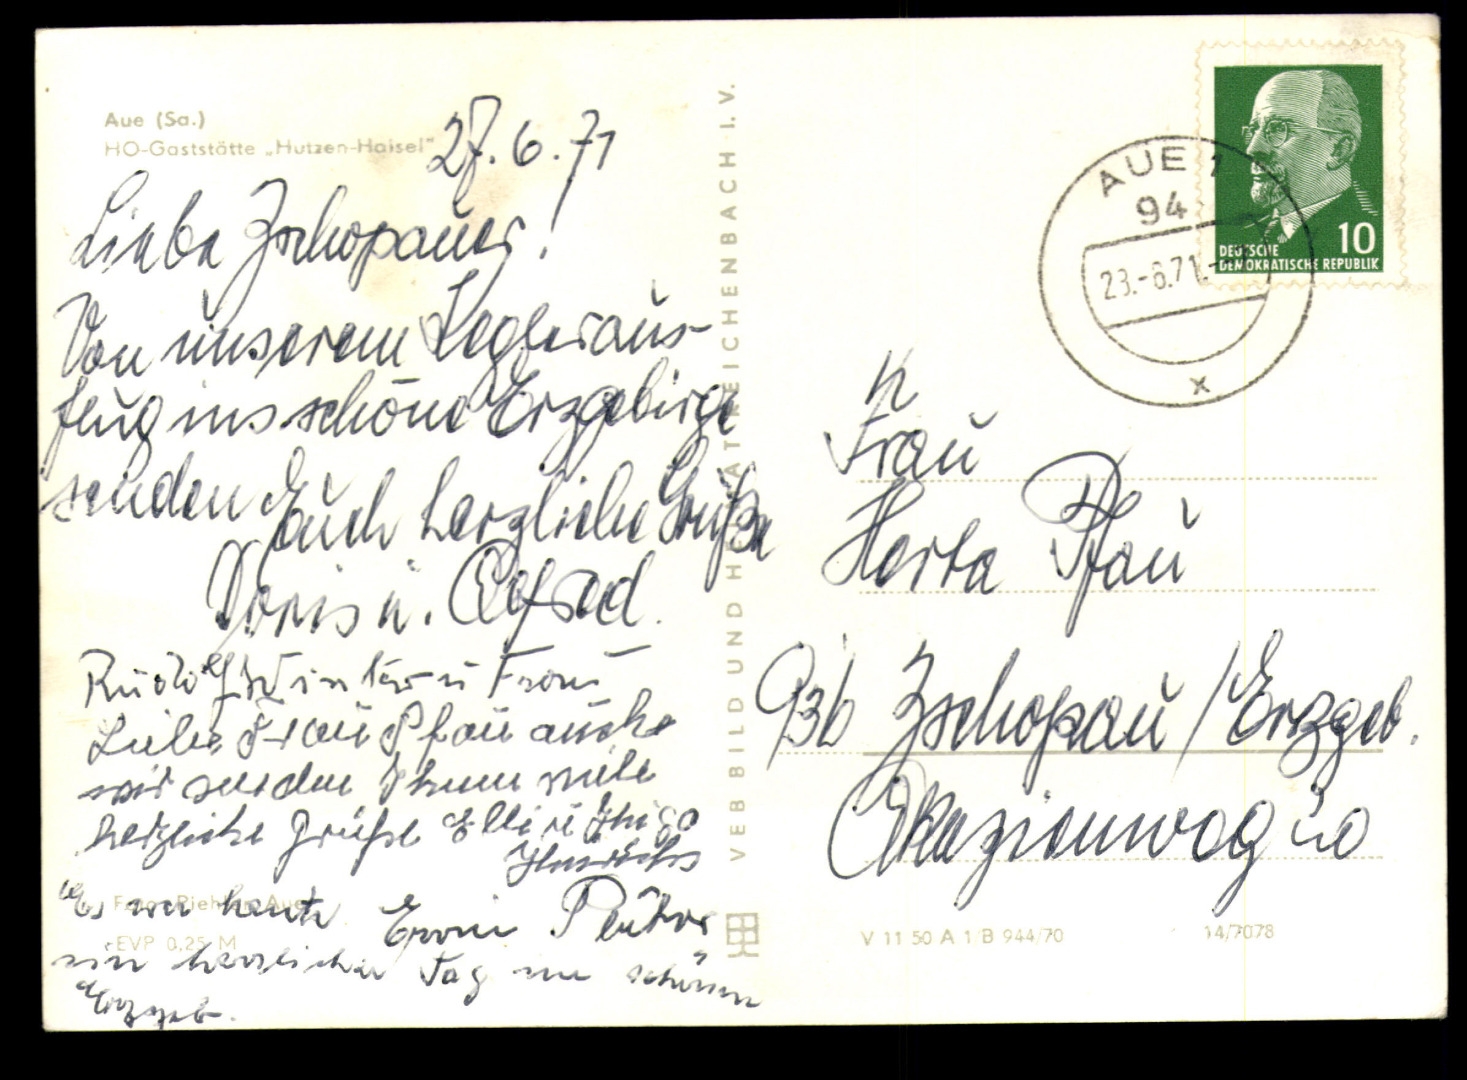 Aue (Sa.)
HO-Gaststätte „Hutzen-Haisel"
27.6.71
Liebe Zschopauer!
Von unserem Kegleraus-
flug ins schöne Erzgebirge
senden Euch herzliche Grüße
Doris u. Alfred.
Rudolf Winter u Frau
Liebe Frau Pfau auch
wir senden Ihnen viele
herzliche Grüße Elli u
Es war heute Erwin
ein herrlicher Tag im schönen
Erzgeb.
Foto: Riehle, Aue
EVP 0,25 M
VEB BILD UND HEIMAT REICHENBACH I. V.
AUE 1
94
23.-6.71.
x
10
DEUTSCHE
DEMOKRATISCHE REPUBLIK
Frau
Herta Pfau
936 Zschopau / Erzgeb.
Akazienweg
V 11 50 A 1 B 944/70
14/7078